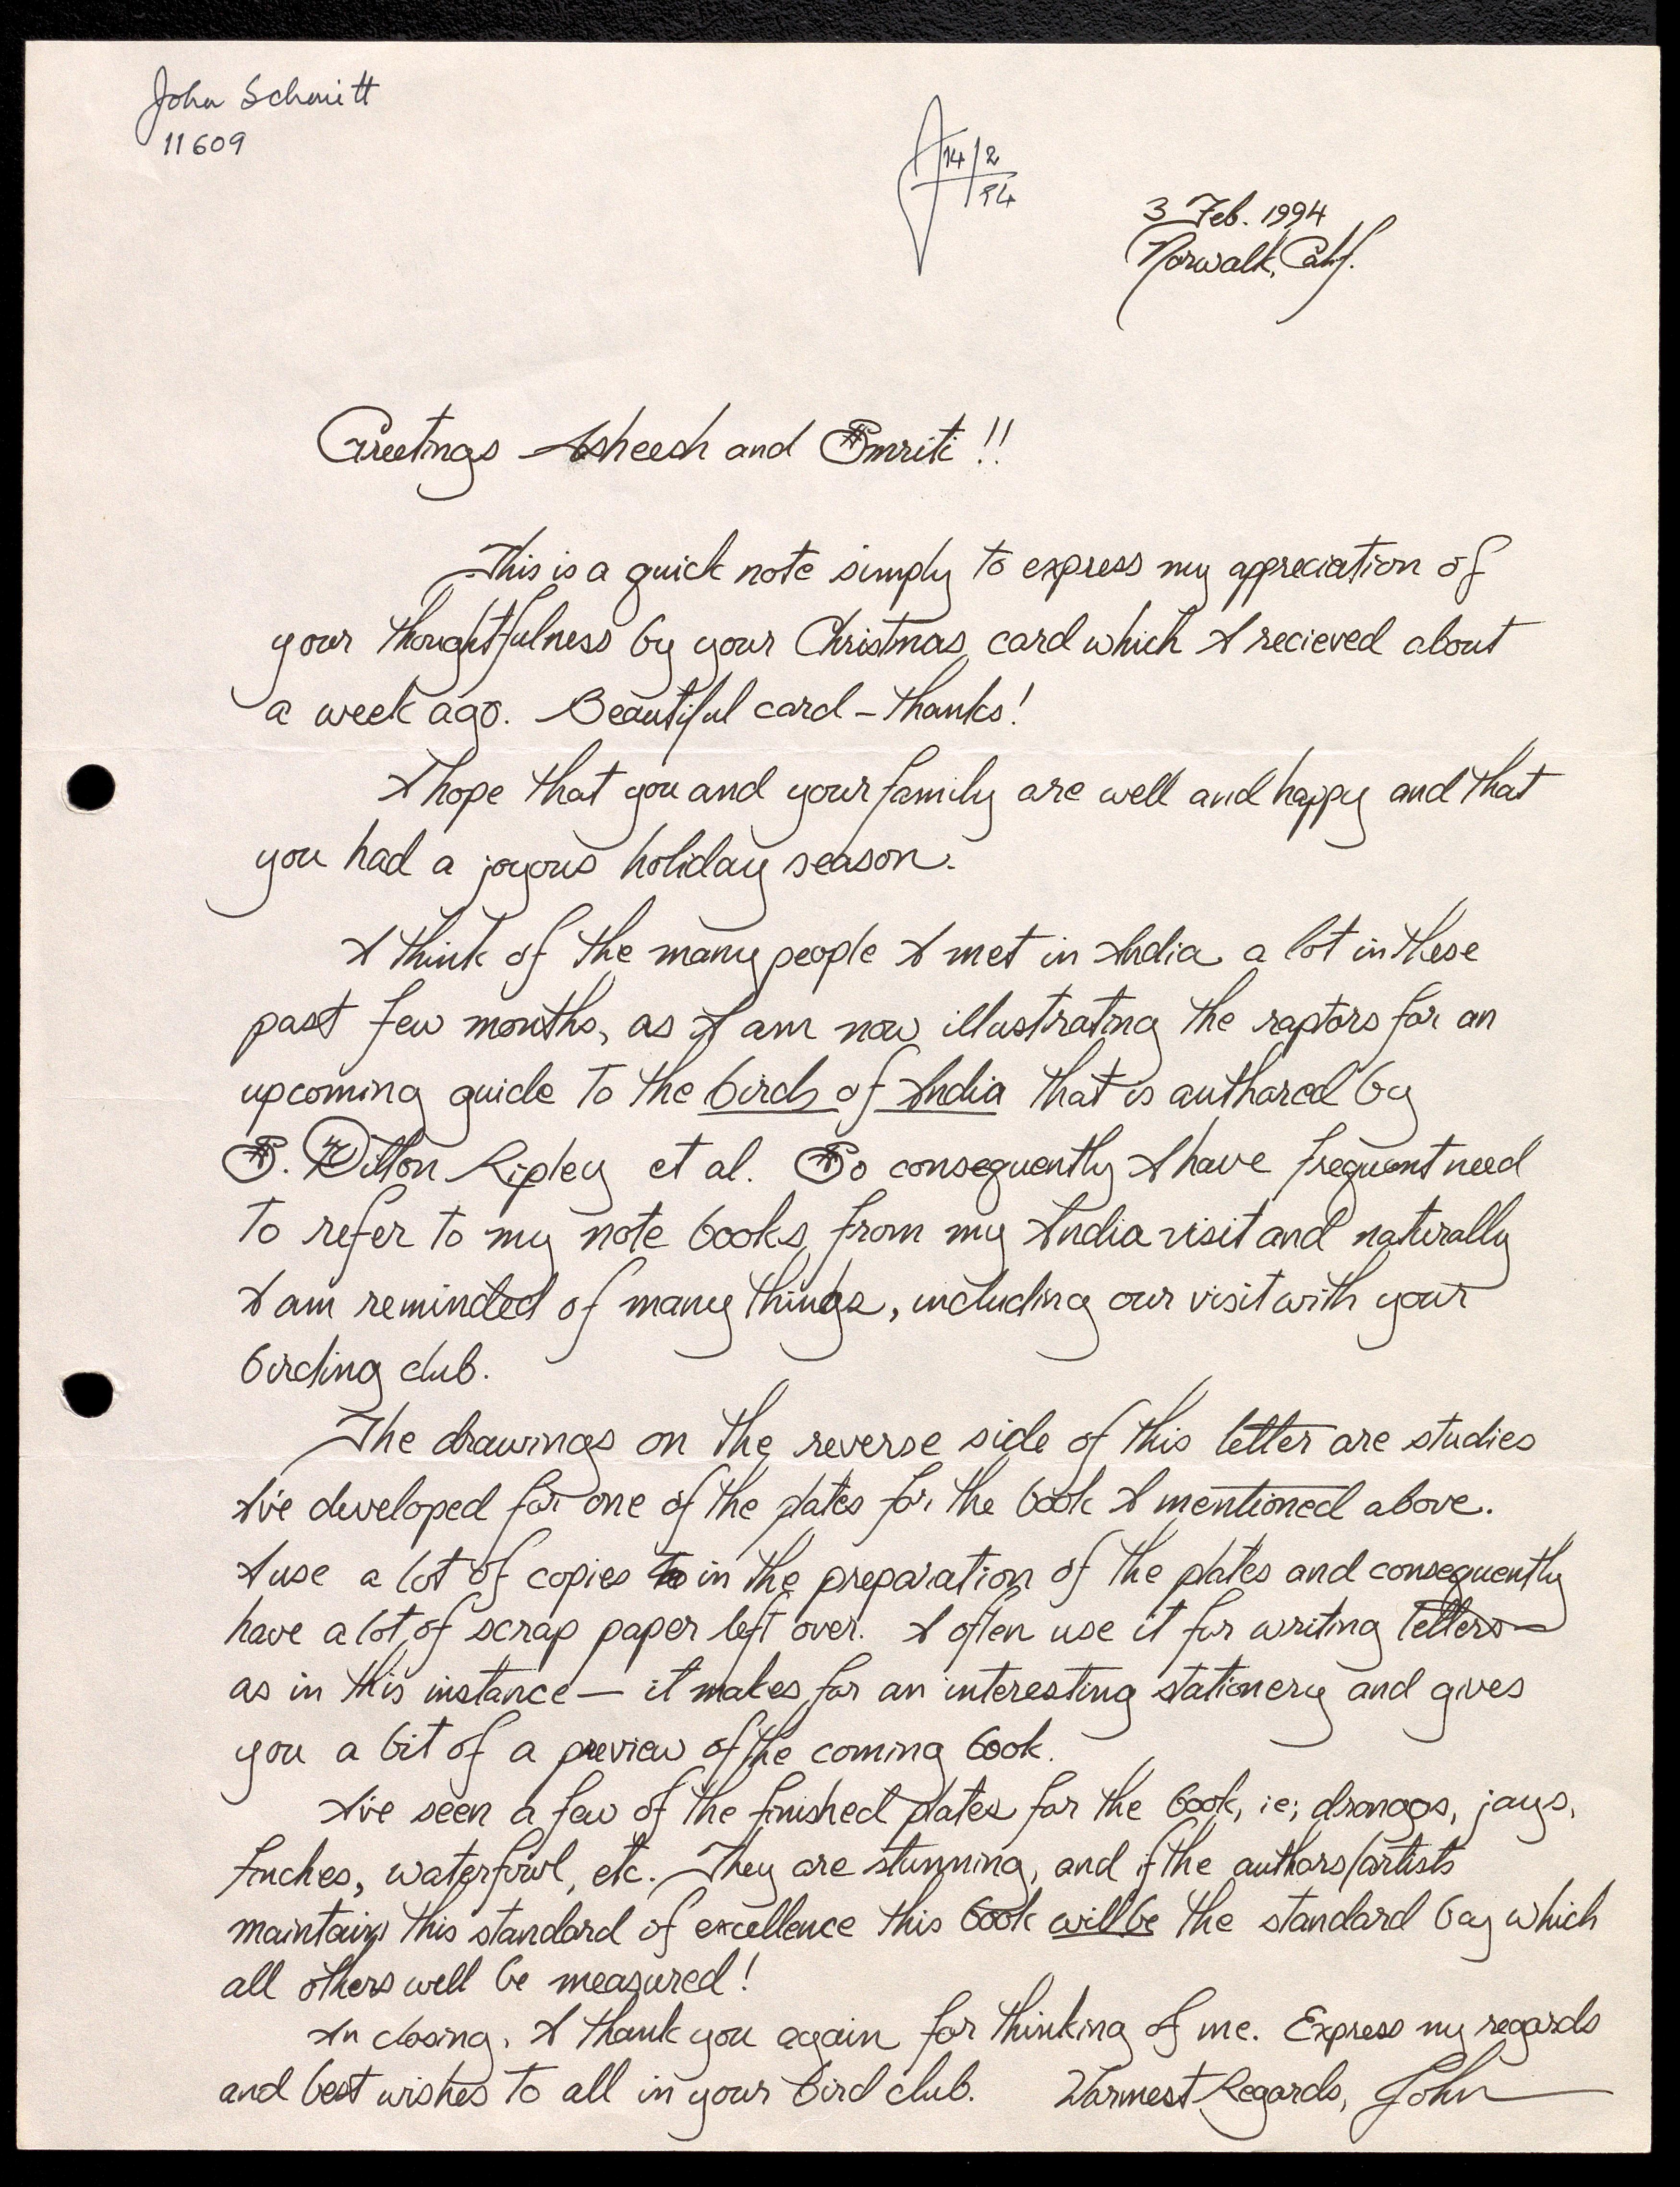 John Schmitt
11609
14/2
94
3 Feb. 1994
Norwalk, Calif.
Greetings Asheesh and Smriti !!
This is a quick note simply to express my appreciation of
your thoughtfulness by your Christmas card which I recieved about
a week ago. Beautiful card – thanks!
I hope that you and your family are well and happy and that
you had a joyous holiday season.
I think of the many people I met in India a lot in these
past few months, as I am now illustrating the raptors for an
upcoming guide to the birds of India that is authored by
S. Dillon Ripley et al. So consequently I have frequent need
to refer to my note books from my India visit and naturally
I am reminded of many things, including our visit with your
birding club.
The drawings on the reverse side of this letter are studies
I've developed for one of the plates for the book I mentioned above.
I use a lot of copies in the preparation of the plates and consequently
have a lot of scrap paper left over. I often use it for writing letters—
as in this instance — it makes for an interesting stationery and gives
you a bit of a preview of the coming book.
I've seen a few of the finished plates for the book, ie; drongos, jays,
finches, waterfowl, etc. They are stunning, and if the authors/artists
maintain this standard of excellence this book will be the standard by which
all others will be measured!
In closing, I thank you again for thinking of me. Express my regards
and best wishes to all in your bird club. Warmest Regards, John